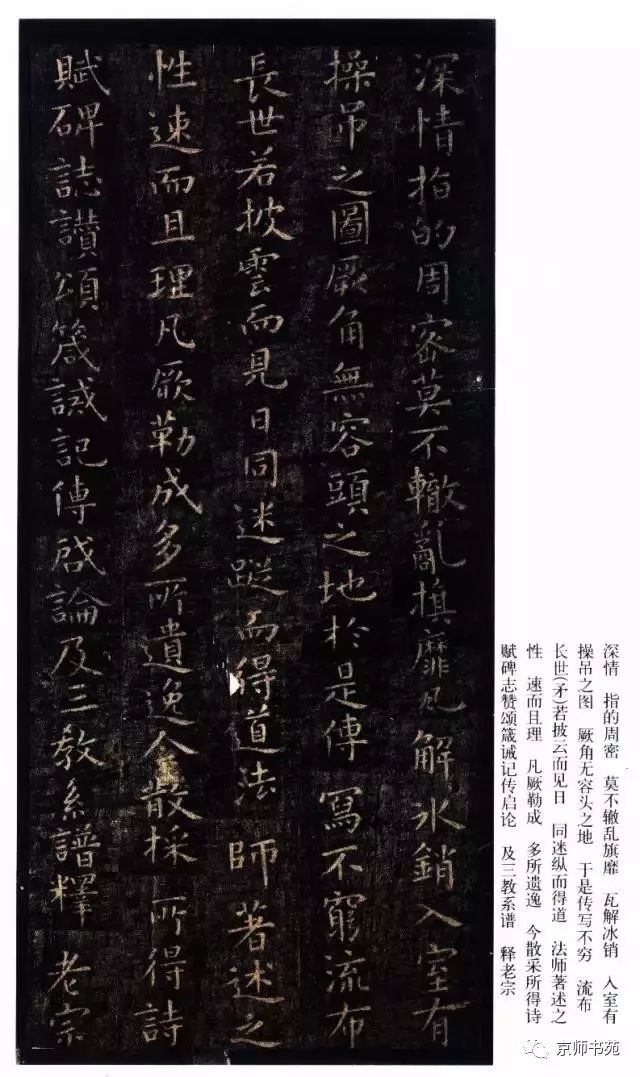 深情指的周密莫不轍亂旗靡瓦解氷銷入室有
操吊之圖厥角無容頭之地於是傳寫不窮流布
長世若披雲而見日同迷蹤而得道法師著述之
性速而且理凡厥勒成多所遺逸今散採所得詩
賦碑誌讃頌箴誡記傳啓論及三教系譜釋老宗
深情 指的周密 莫不辙乱旗靡 瓦解冰销 入室有
操吊之图 厥角无容头之地 于是传写不穷 流布
长世(矛)若披云而见日 同迷纵而得道 法师著述之
性 速而且理 凡厥勒成 多所遗逸 今散采所得诗
赋碑志赞颂箴诫记传启论 及三教系谱 释老宗
京师书苑